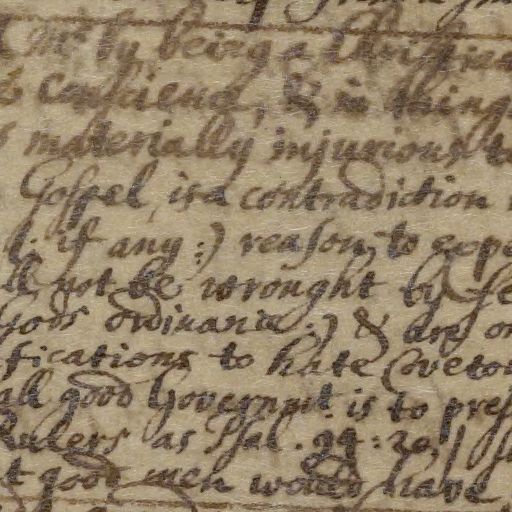 by being a Christian
Conscience, & in things
materially injurious to
Gospel, is a contradiction
if any:) reason, to expe
ll not be wrought by
Gods ordinance:) & are on
fications to hate Covetou
all good Governmt. is to pres
Rulers as Psal. 94:20,
t good men would have